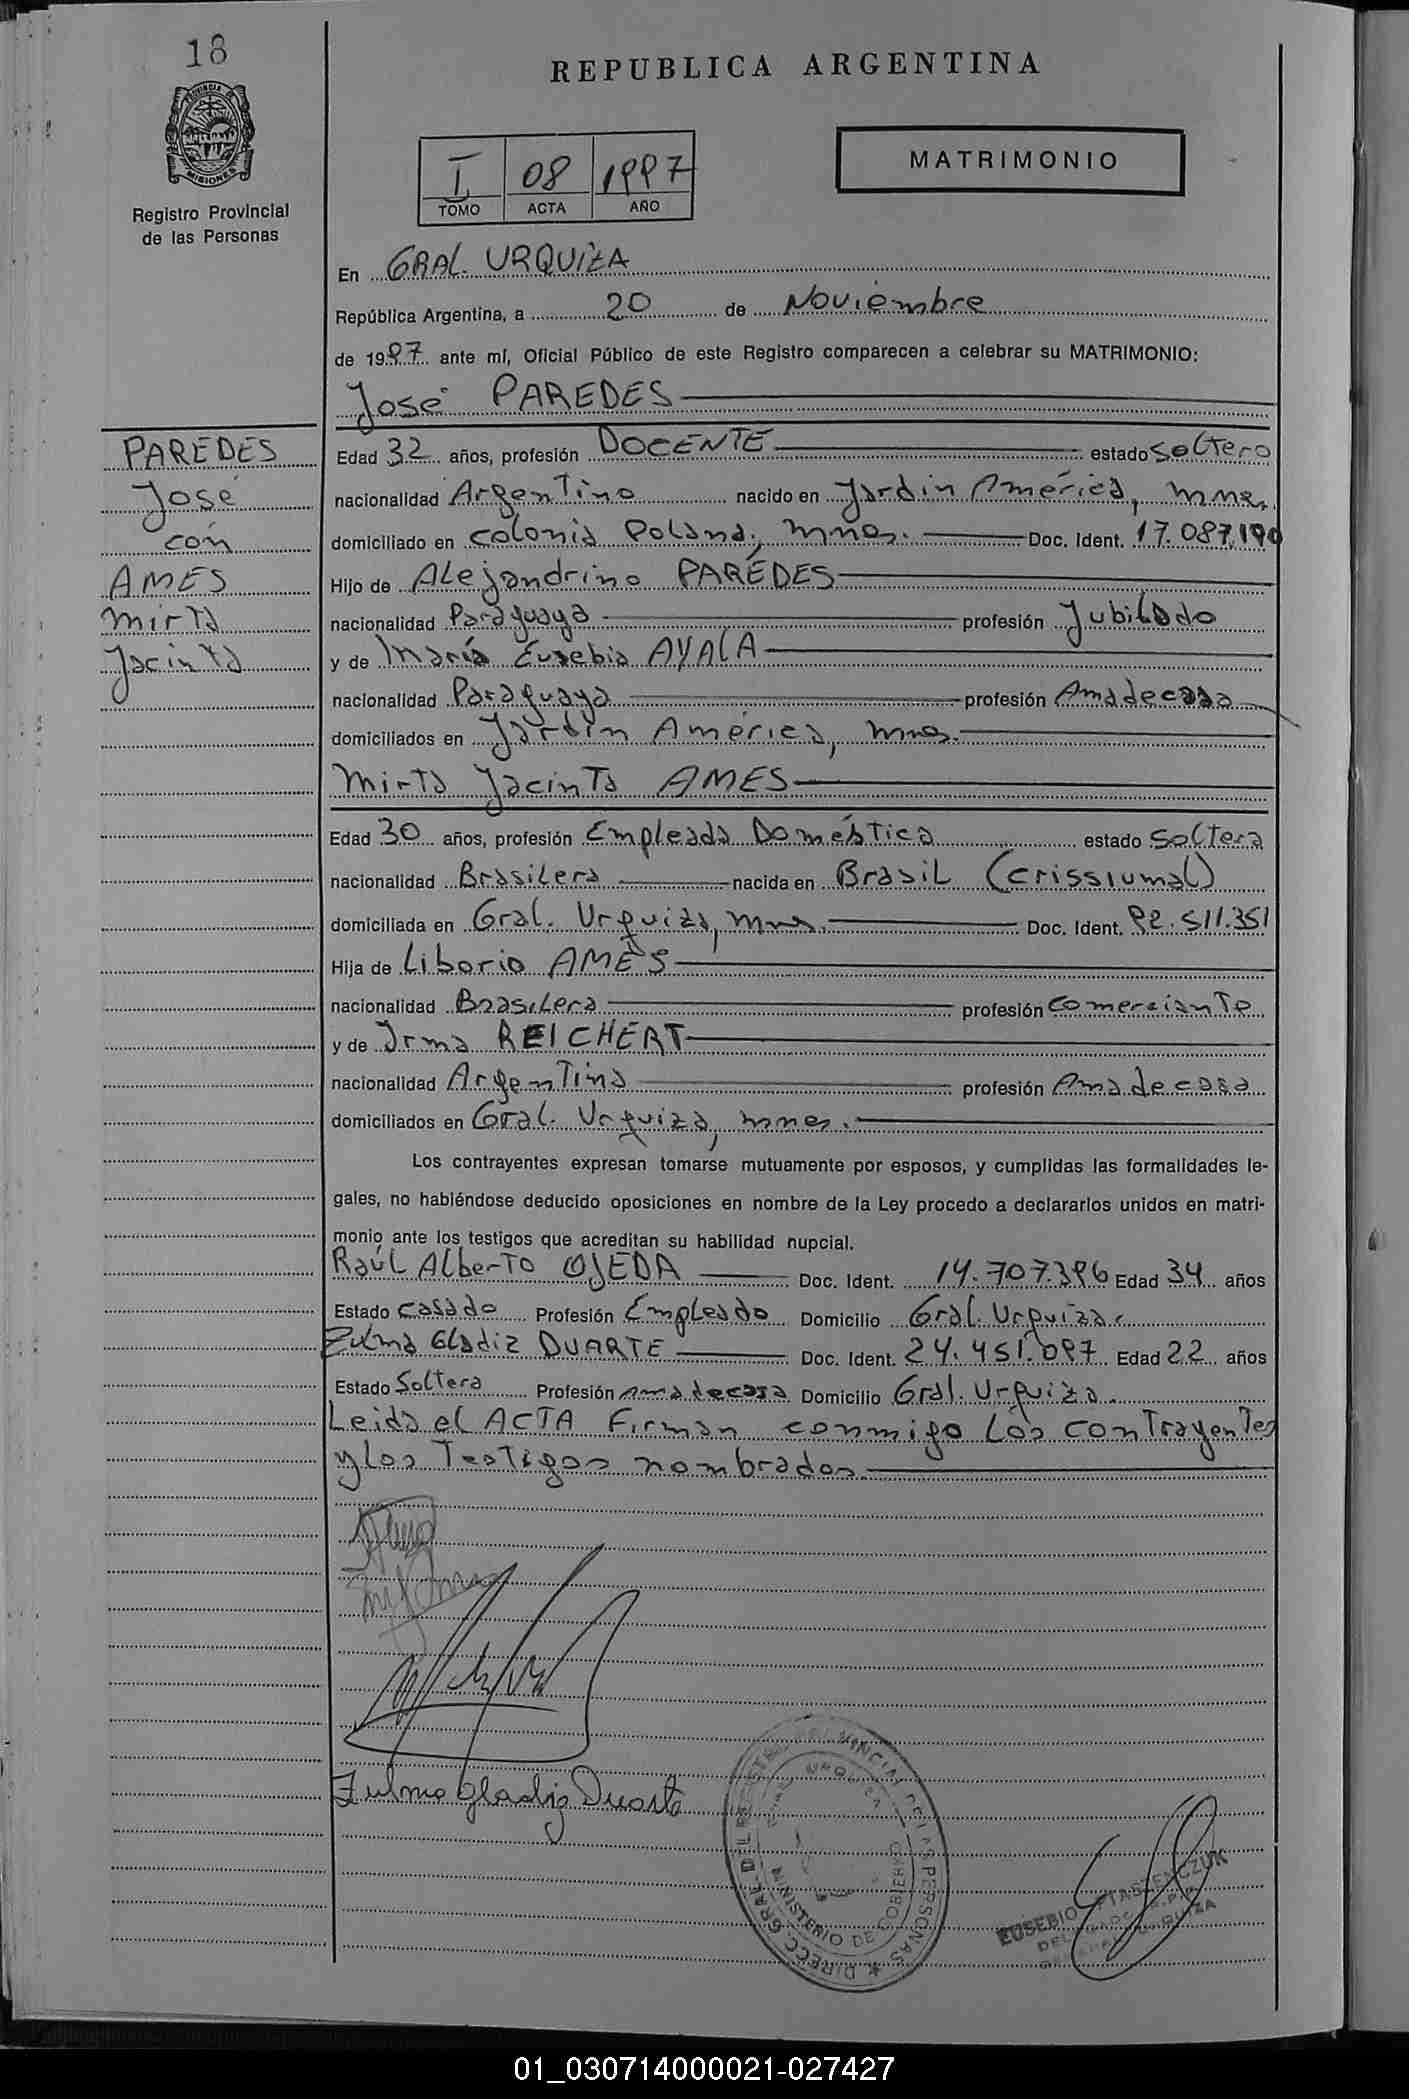 18
REPUBLICA ARGENTINA
PROVINCIA DE
MISIONES
Registro Provincial
de las Personas
I 08 1997
TOMO ACTA AÑO
MATRIMONIO
En GRAL. URQUIZA
República Argentina, a 20 de Noviembre
de 1997 ante mí, Oficial Público de este Registro comparecen a celebrar su MATRIMONIO:
José PAREDES
PAREDES
José
con
AMES
Mirta
Jacinta
Edad 32 años, profesión DOCENTE estado soltero
nacionalidad Argentino nacido en Jardin América, mnes.
domiciliado en colonia Polana, mnes. Doc. Ident. 17.087.190
Hijo de Alejandrino PAREDES
nacionalidad Paraguaya profesión Jubilado
y de María Eusebia AYALA
nacionalidad Paraguaya profesión Ama de casa
domiciliados en Jardin América, mnes.
Mirta Jacinta AMES
Edad 30 años, profesión Empleada Doméstica estado soltera
nacionalidad Brasilera nacida en Brasil (Crissiumal)
domiciliada en Gral. Urquiza, mnes. Doc. Ident. 92.511.351
Hija de Liborio AMES
nacionalidad Brasilera profesión comerciante
y de Irma REICHERT
nacionalidad Argentina profesión Ama de casa
domiciliados en Gral. Urquiza, mnes.
Los contrayentes expresan tomarse mutuamente por esposos, y cumplidas las formalidades le-
gales, no habiéndose deducido oposiciones en nombre de la Ley procedo a declararlos unidos en matri-
monio ante los testigos que acreditan su habilidad nupcial.
Raúl Alberto OJEDA Doc. Ident. 14.707.396 Edad 34 años
Estado casado Profesión Empleado Domicilio Gral. Urquiza
Zulma Gladiz DUARTE Doc. Ident. 24.451.097 Edad 22 años
Estado Soltera Profesión ama de casa Domicilio Gral. Urquiza
Leida el ACTA Firman conmigo los contrayentes
y los Testigos nombrados
Zulma Gladiz Duarte
DIRECC. GRAL. DEL REGISTRO PROVINCIAL DE LAS PERSONAS
GRAL. URQUIZA
MINISTERIO DE GOBIERNO
EUSEBIO PTASZENCZUK
DELEGADO R.P.P.
GENERAL URQUIZA
01_030714000021-027427